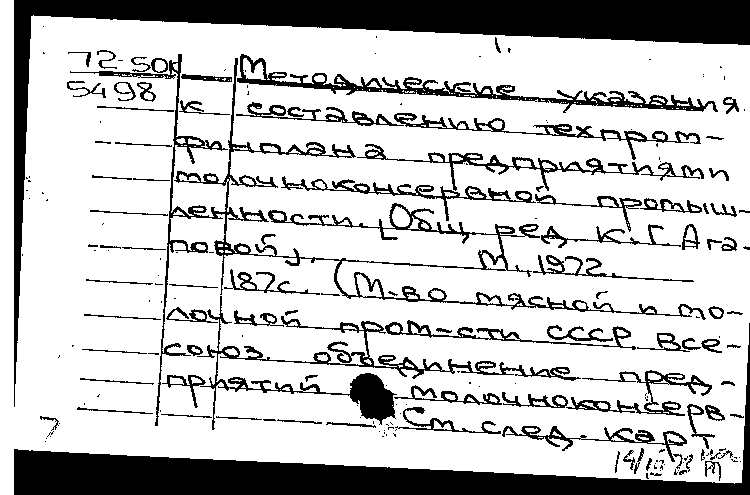 1.
72-50к Методические указания
5498 к составлению техпром-
финплана предприятиями
молочноконсервной промыш-
ленности. [Общ. ред. К.Г. Ага-
повой].
М., 1972.
187с. (М-во мясной и мо-
лочной пром-сти СССР. Все-
союз. объединение пред-
приятий молочноконсерв-
См. след. карт
7